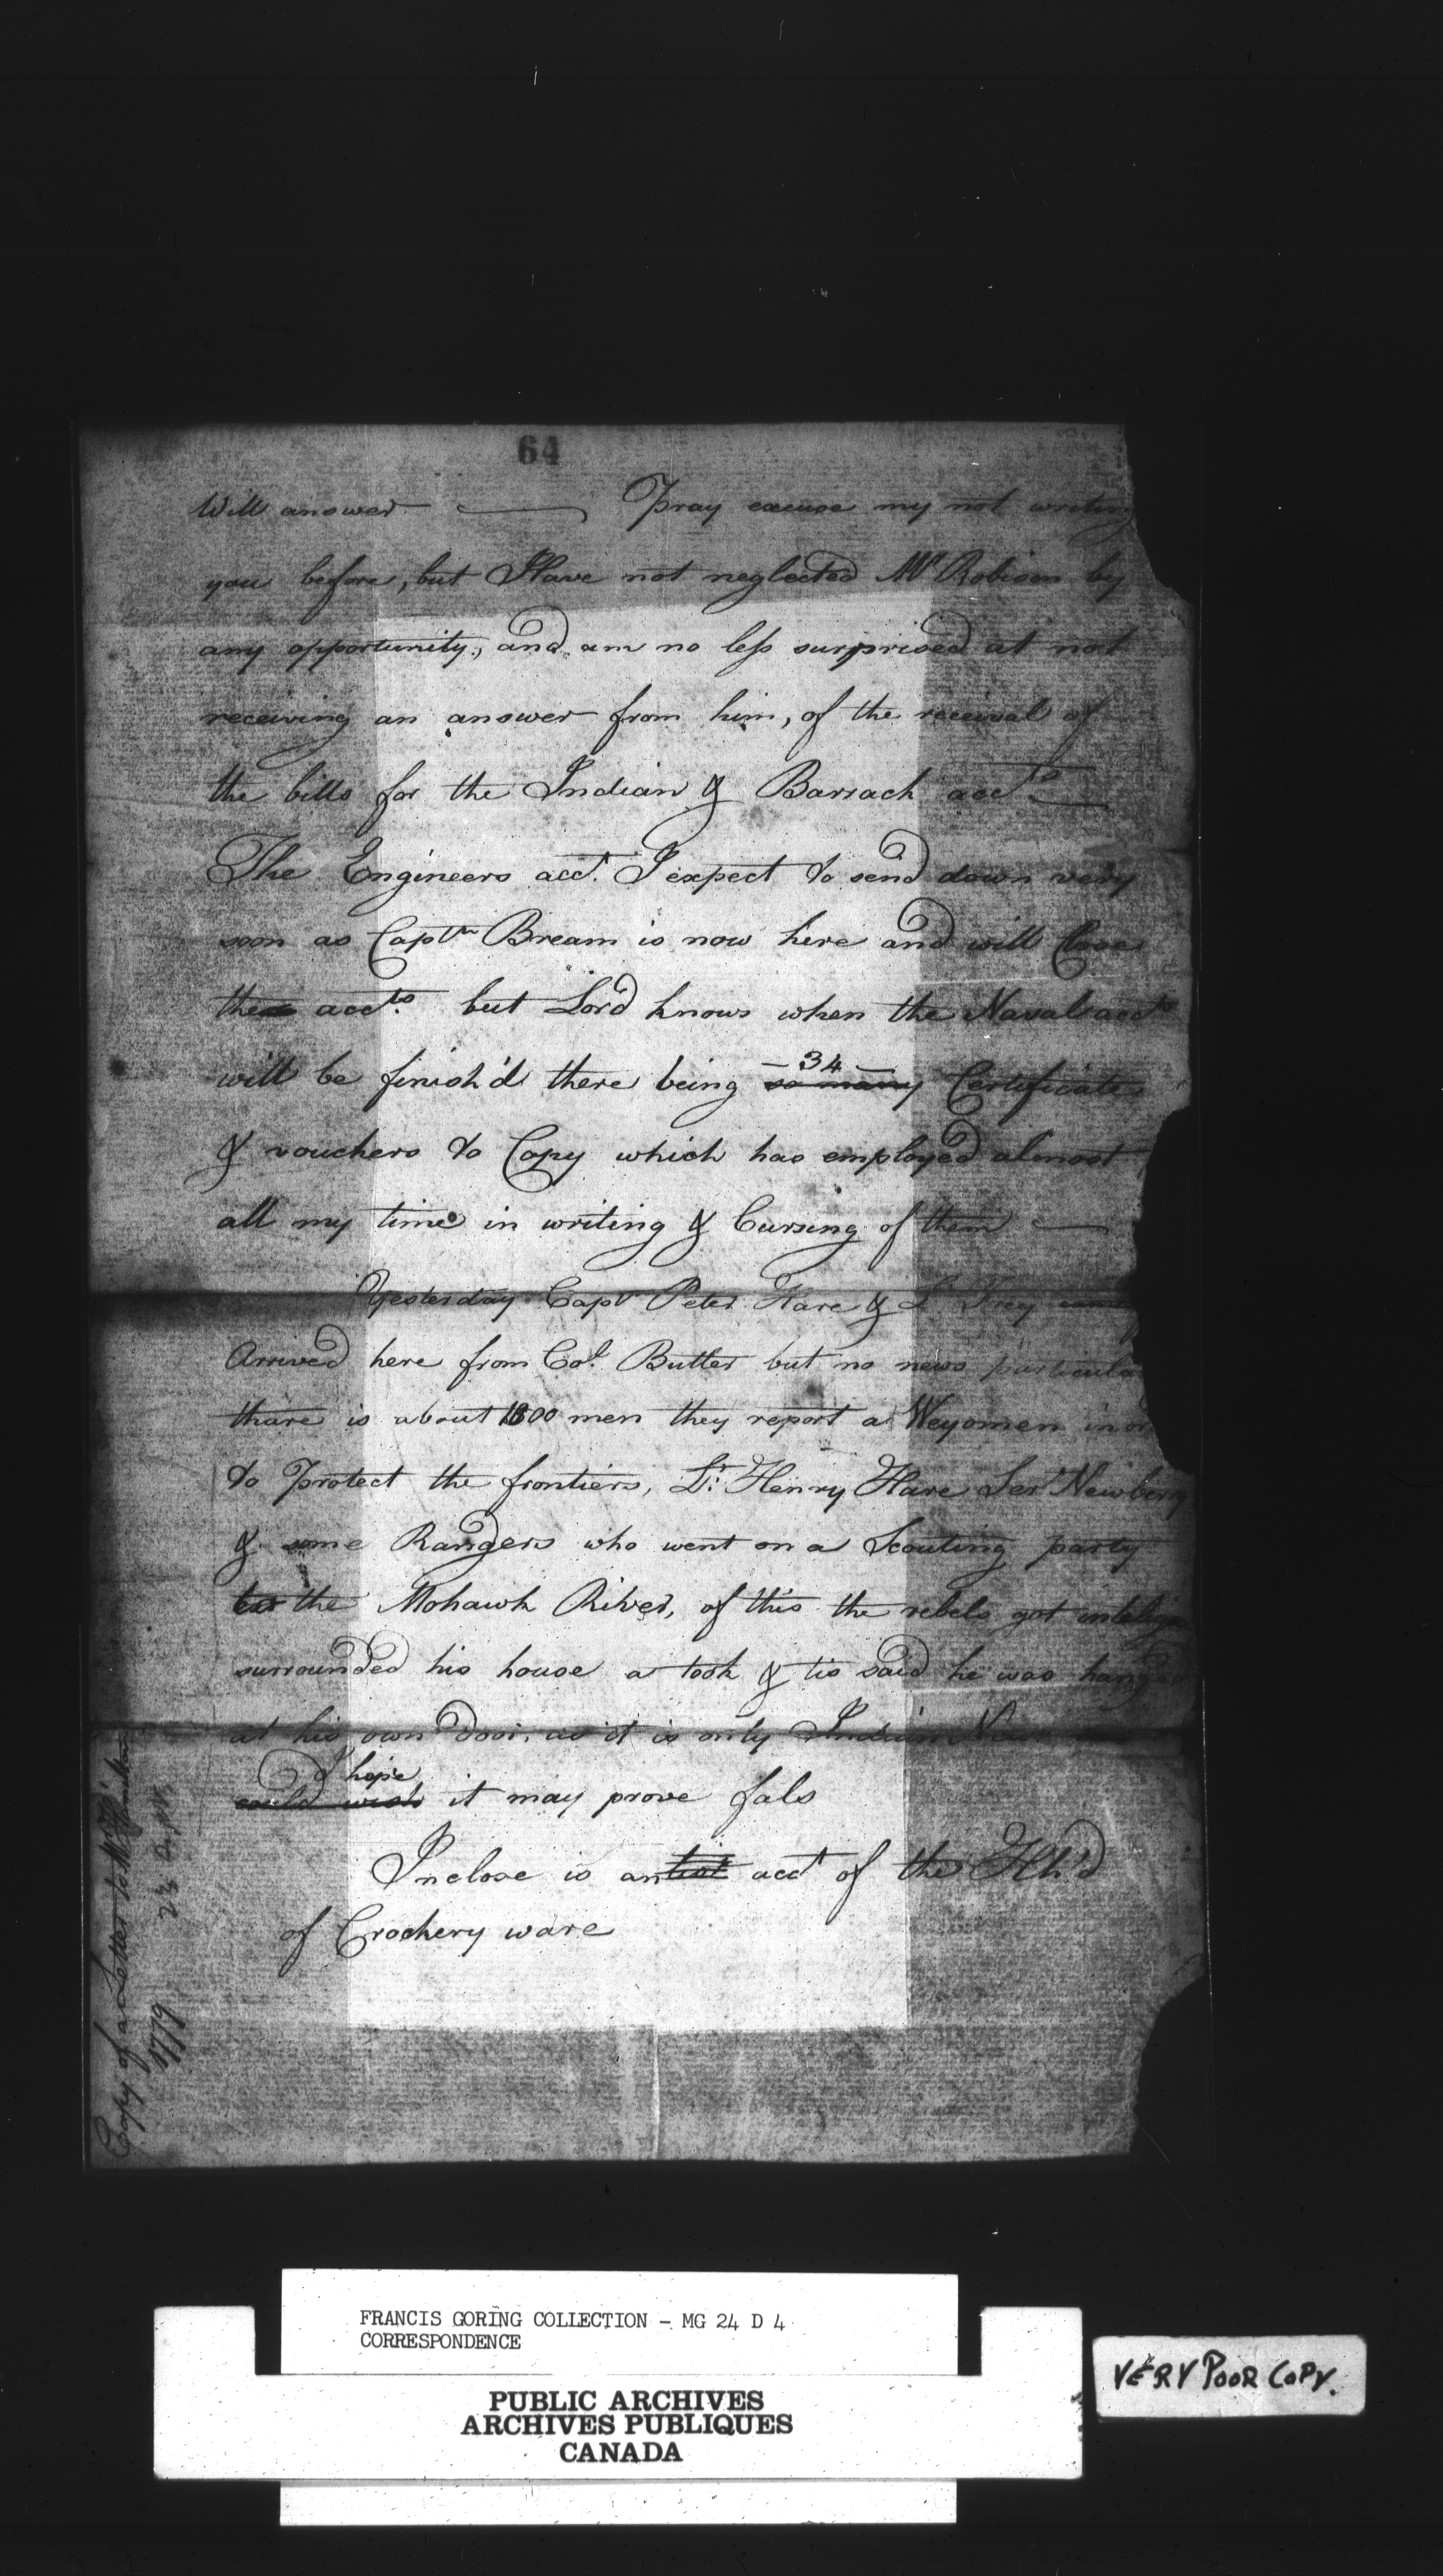 64
Will answer — Pray excuse my not writing
you before, but I Have not neglected Mr Robison by
any opportunity, and am no less surprised at not
receiving an answer from him, of the receival of
the bills for the Indian & Barrack accts
The Engineers acct. I expect to send down very
soon as Captn Bream is now here and will Close
the accts. but Lord knows when the Naval accts
will be finish'd there being so many - 34 - Certificate
& vouchers to Copy which has employed almost
all my time in writing & Cursing of them —
Yesterday Capt Peter Hare & Lt Frey
Arrived here from Col. Butler but no news particular
thare is about 1800 men they report a Weyomen in
to Protect the frontiers, Lt. Henry Hare Ser Newberry
& some Rangers who went on a Scouting party
the Mohawk River, of this the rebels got
surrounded his house a took & tis said he was hanged
at his own door, as it is only Indian
could wish I hope it may prove fals
Inclose is an acct of the Hh'd
of Crockery ware
Copy of a Letter to Mr
1779
FRANCIS GORING COLLECTION - MG 24 D 4
CORRESPONDENCE
PUBLIC ARCHIVES
ARCHIVES PUBLIQUES
CANADA
VERY POOR COPY.